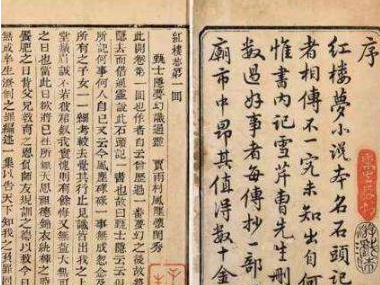 序
紅樓夢小説本名石頭記
者相傳不一究未知出自何
惟書内記雪芹曹先生刪
數過好事者每傳抄一部
廟市中昂其值得數十金
紅樓夢第一回
甄士隱夢幻識通靈　賈雨村風塵懷閨秀
此開卷第一回也作者自云曾歷過一番夢幻之後故
隱去而借通靈說此石頭記一書也故曰甄士隱云云但
所記何事何人自己又云今風塵碌碌一事無成忽念
所有之子女一一細考較去覺其行止見識皆出我之上
堂堂鬚眉誠不若彼裙釵我實愧則有餘悔又無益大無
之日也當此日欲將已往所賴天恩祖德錦衣紈袴之時
饜肥之日背父兄教育之恩負師友規訓之德以致今
無成半生潦倒之罪編述一集以告天下知我之罪固